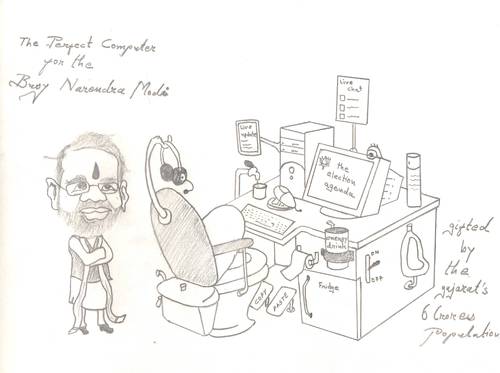 The Perfect Computer
for the
Busy Narendra Modi
Live
chat
Live
update
the
election
agenda
energy
drink
ON
OFF
Fridge
COPY
PASTE
gifted
by
the
gujarat's
6 Crores
Population